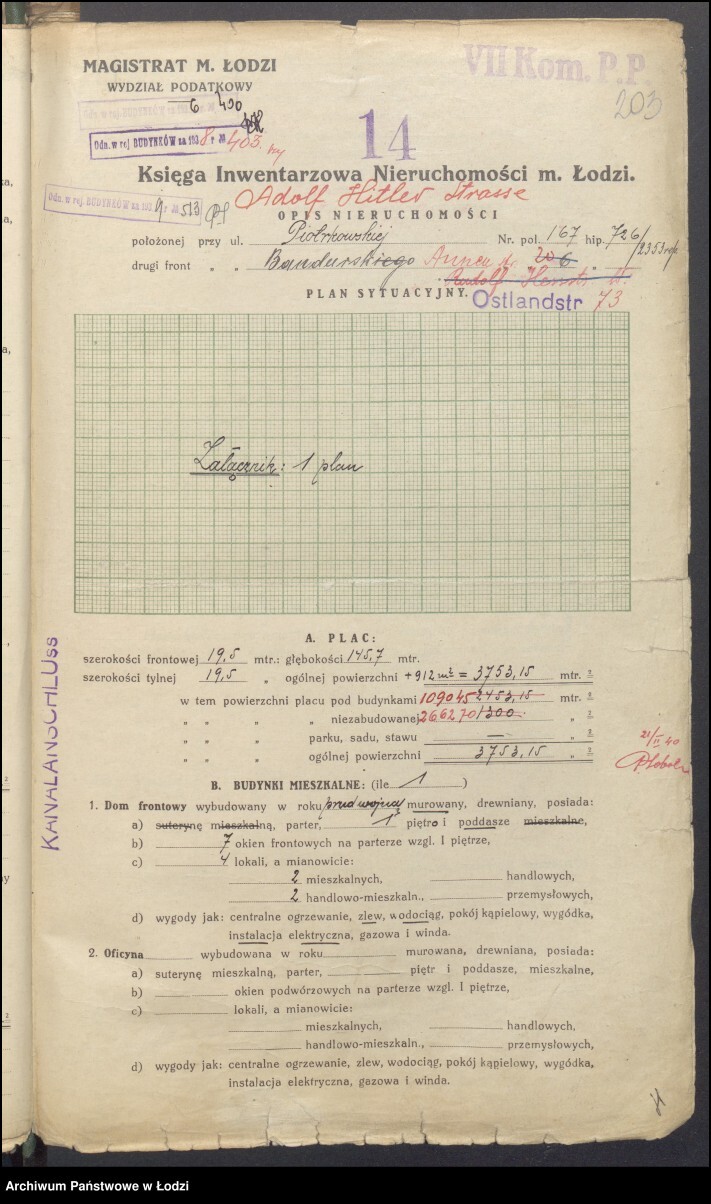 MAGISTRAT M. ŁODZI
WYDZIAŁ PODATKOWY
VII Kom. P.P.
203
6 400
Odn. w rej BUDYNKÓW za 1938 r № 403.
14
Księga Inwentarzowa Nieruchomości m. Łodzi.
Odn. w rej. BUDYNKÓW za 1939 r № 513
Adolf Hitler Strasse
OPIS NIERUCHOMOŚCI
położonej przy ul. Piotrkowskiej Nr. pol. 167 hip. 726/2353
drugi front " " Bandurskiego Anny 20 6
Rudolf
PLAN SYTUACYJNY. Ostlandstr 73
Załącznik: 1 plan
KANALANSCHLUss
A. PLAC:
szerokości frontowej 19,5 mtr.: głębokości 145,7 mtr.
szerokości tylnej 19,5 " ogólnej powierzchni +912 m² = 3753,15 mtr. ²
w tem powierzchni placu pod budynkami 109045 2453,15 mtr. ²
" " " " niezabudowanej 266270 1300. " ²
" " " parku, sadu, stawu — " ²
" " " ogólnej powierzchni 3753,15 " ²
21/II 40
B. BUDYNKI MIESZKALNE: (ile 1 )
1. Dom frontowy wybudowany w roku przed wojną murowany, drewniany, posiada:
a) suterynę mieszkalną, parter, 1 piętro i poddasze mieszkalne,
b) 7 okien frontowych na parterze wzgl. I piętrze,
c) 4 lokali, a mianowicie:
2 mieszkalnych, handlowych,
2 handlowo-mieszkaln., przemysłowych,
d) wygody jak: centralne ogrzewanie, zlew, wodociąg, pokój kąpielowy, wygódka,
instalacja elektryczna, gazowa i winda.
2. Oficyna wybudowana w roku murowana, drewniana, posiada:
a) suterynę mieszkalną, parter, piętr i poddasze, mieszkalne,
b) okien podwórzowych na parterze wzgl. I piętrze,
c) lokali, a mianowicie:
mieszkalnych, handlowych,
handlowo-mieszkaln., przemysłowych,
d) wygody jak: centralne ogrzewanie, zlew, wodociąg, pokój kąpielowy, wygódka,
instalacja elektryczna, gazowa i winda.
Archiwum Państwowe w Łodzi